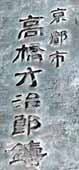 京都市
高橋才治郎鋳